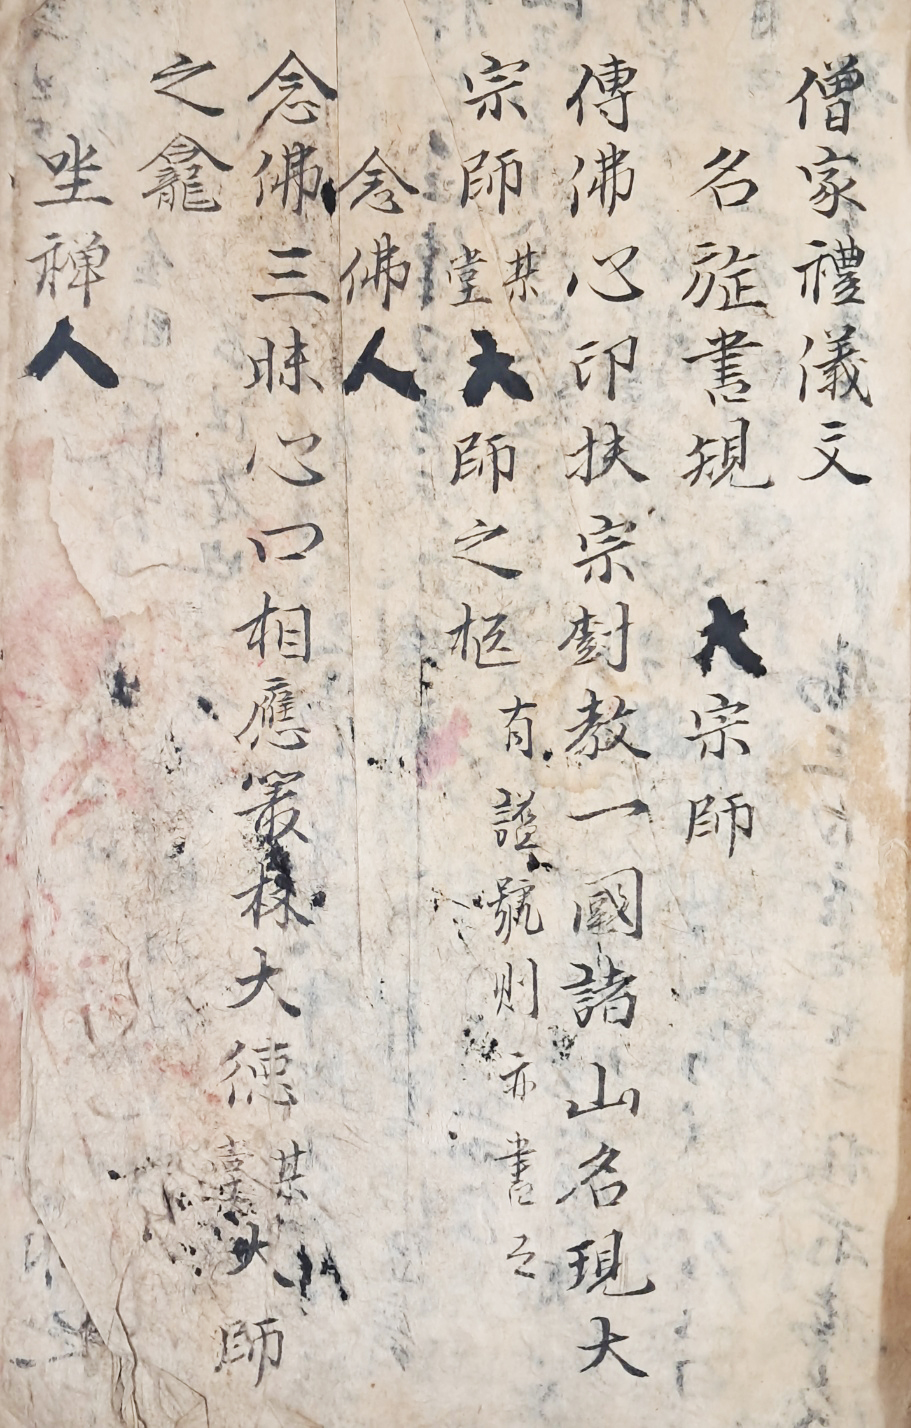 僧家禮儀文
名旌書規 大宗師
傳佛心印扶宗對教一國諸山名現大
宗師某堂大師之柩有謚號則亦書之
念佛人
念佛三昧心口相應叢林大德某堂大師
之龕
坐禪人